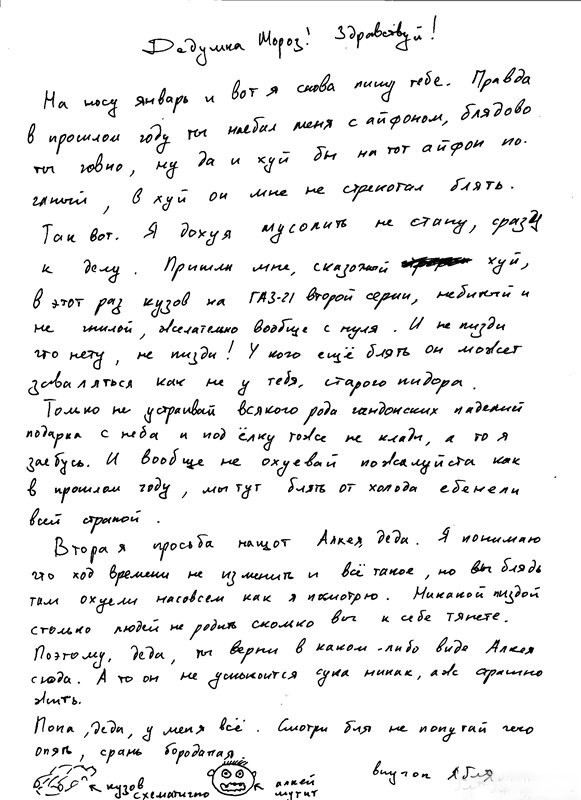 Дедушка Мороз! Здравствуй!
На носу январь и вот я снова пишу тебе. Правда
в прошлом году ты наебал меня с айфоном, блядово
ты говно, ну да и хуй бы на тот айфон по-
ганый, в хуй он мне не стрекотал блять.
Так вот. Я дохуя мусолить не стану, сразу
к делу. Пришли мне, сказочный хуй,
в этот раз кузов на ГАЗ-21 второй серии, небитый и
не гнилой, желательно вообще с нуля. И не пизди
что нету, не пизди! У кого ещё блять он может
заваляться как не у тебя, старого пидора.
Только не устраивай всякого рода гандонских падений
подарка с неба и под ёлку тоже не клади, а то я
заебусь. И вообще не охуевай пожалуйста как
в прошлом году, мы тут блять от холода ебенели
всей страной.
Вторая просьба нащот Алкея, деда. Я понимаю
что ход времени не изменить и всё такое, но вы блядь
там охуели насовсем как я посмотрю. Никакой пиздой
столько людей не родить сколько вы к себе тянете.
Поэтому, деда, ты верни в каком-либо виде Алкея
сюда. А то он не успокоится сука никак, аж страшно
жить.
Пока, деда, у меня всё. Смотри бля не попутай чего
опять, срань бородатая.
кузов схематично
алкей мутит
внучок Я бля